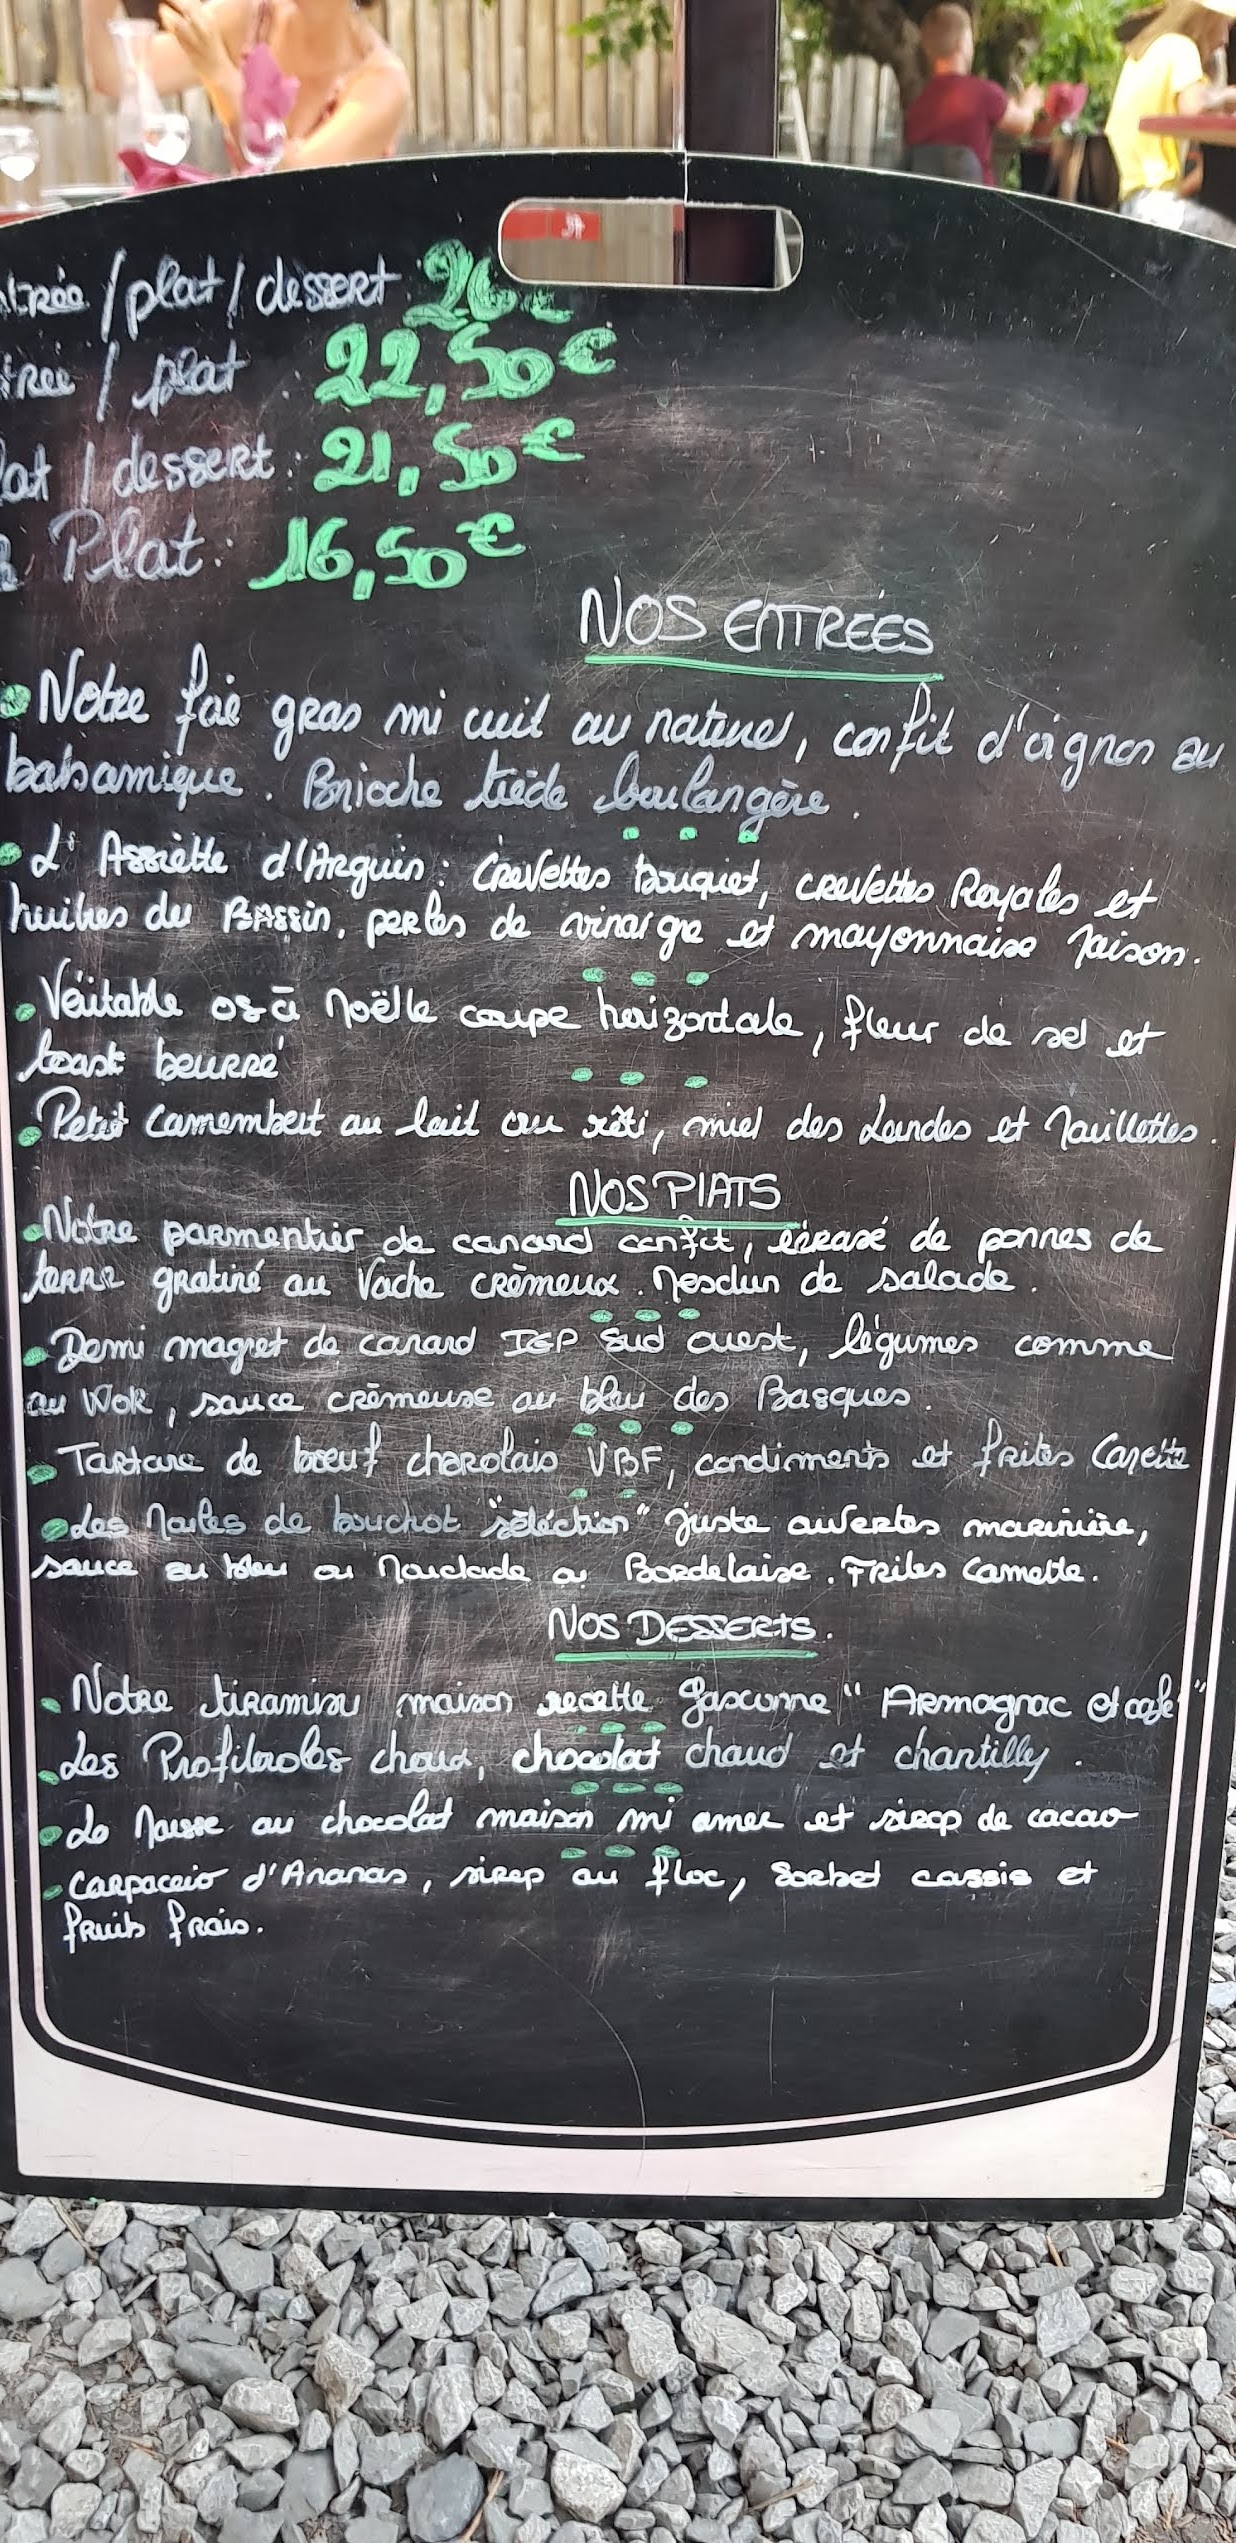 trée / plat / dessert 26 €
trée / plat : 22,50 €
lat / dessert : 21,50 €
Plat : 16,50 €
NOS ENTRÉES
Notre foie gras mi cuit au naturel, confit d'oignon au
balsamique. Brioche tiède boulangère.
L'Assiette d'Arguin : Crevettes Bouquet, crevettes Royales et
huitres du BASSIN, perles de vinaigre et mayonnaise Maison.
Véritable os à Moëlle coupe horizontale, fleur de sel et
toast beurré
Petit Camembert au lait cru rôti, miel des Landes et Mouillettes.
NOS PLATS
Notre parmentier de canard confit, écrasé de pommes de
terre gratiné au Vache crèmeux. Mesclun de salade.
Demi magret de canard IGP Sud ouest, légumes comme
au Wok, sauce crèmeuse au bleu des Basques.
Tartare de boeuf charolais VBF, condiments et frites
Les Moules de bouchot "séléction" juste ouvertes marinière,
sauce au bleu ou Mouclade ou Bordelaise. Frites Cornette.
NOS DESSERTS.
Notre tiramisu maison recette gasconne "Armagnac et café"
Les Profiteroles choux, chocolat chaud et chantilly.
La Mousse au chocolat maison mi amer et sirop de cacao
Carpaccio d'Ananas, sirop au floc, sorbet cassis et
fruits frais.